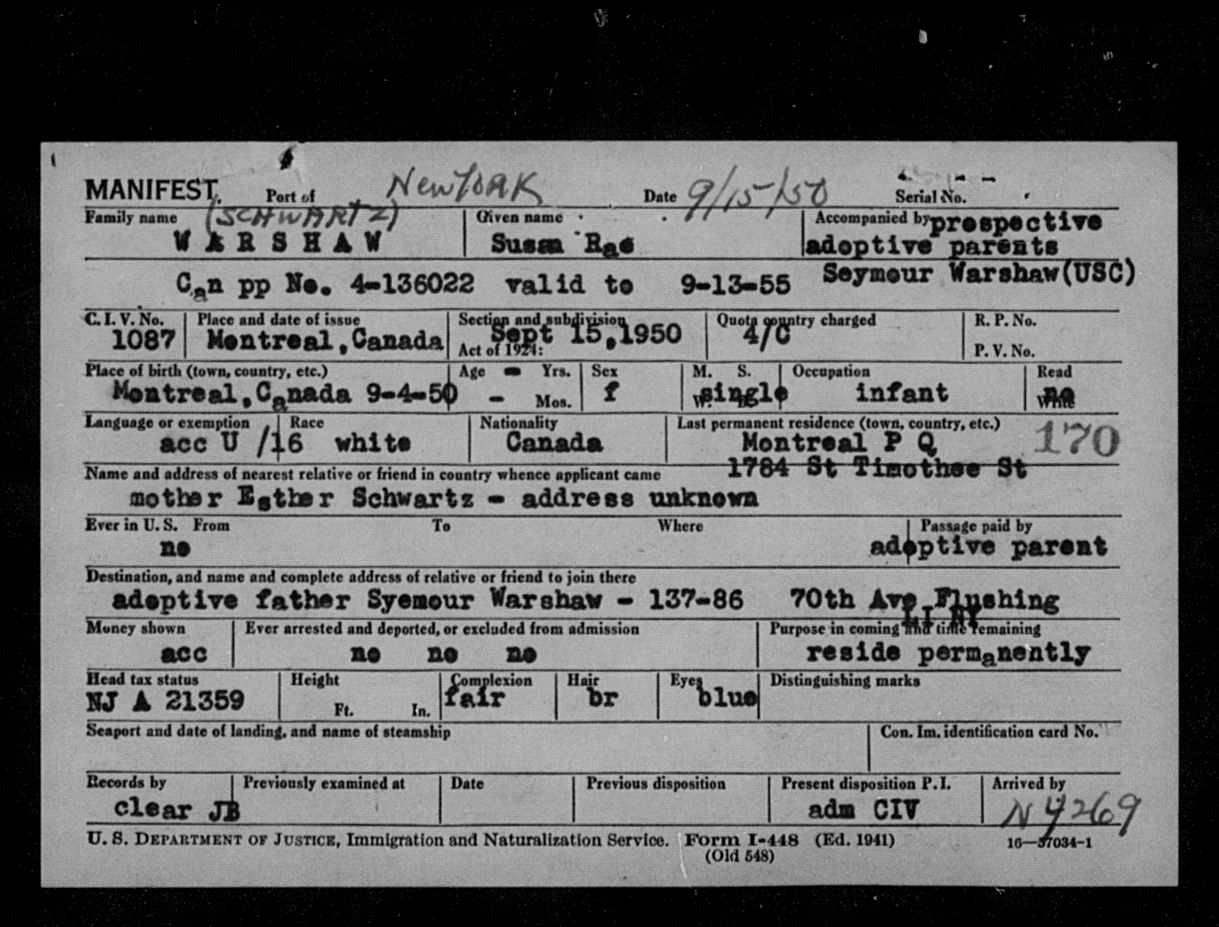 MANIFEST, Port of New York Date 9/15/50 Serial No.
Family name (SCHWARTZ) Given name Accompanied by prospective
WARSHAW Susan Rae adoptive parents
Can pp No. 4-136022 valid to 9-13-55 Seymour Warshaw(USC)
C. I. V. No. Place and date of issue Section and subdivision Quota country charged R. P. No.
1087 Montreal,Canada Sept 15,1950 4/C
Act of 1924: P. V. No.
Place of birth (town, country, etc.) Age Yrs. Sex M. S. Occupation Read
Montreal,Canada 9-4-50 - Mos. f W. single infant Write no
Language or exemption Race Nationality Last permanent residence (town, country, etc.)
acc U /16 white Canada Montreal P Q 170
1784 St Timothee St
Name and address of nearest relative or friend in country whence applicant came
mother Esther Schwartz - address unknown
Ever in U. S. From To Where Passage paid by
no adoptive parent
Destination, and name and complete address of relative or friend to join there
adoptive father Syemour Warshaw - 137-86 70th Ave Flushing
LI NY
Money shown Ever arrested and deported, or excluded from admission Purpose in coming and time remaining
acc no no no reside permanently
Head tax status Height Complexion Hair Eyes Distinguishing marks
NJ A 21359 Ft. In. fair br blue
Seaport and date of landing, and name of steamship Con. Im. identification card No.
Records by Previously examined at Date Previous disposition Present disposition P. I. Arrived by
clear JB adm CIV N 4269
U. S. DEPARTMENT OF JUSTICE, Immigration and Naturalization Service. Form I-448 (Ed. 1941) 16—37034-1
(Old 548)